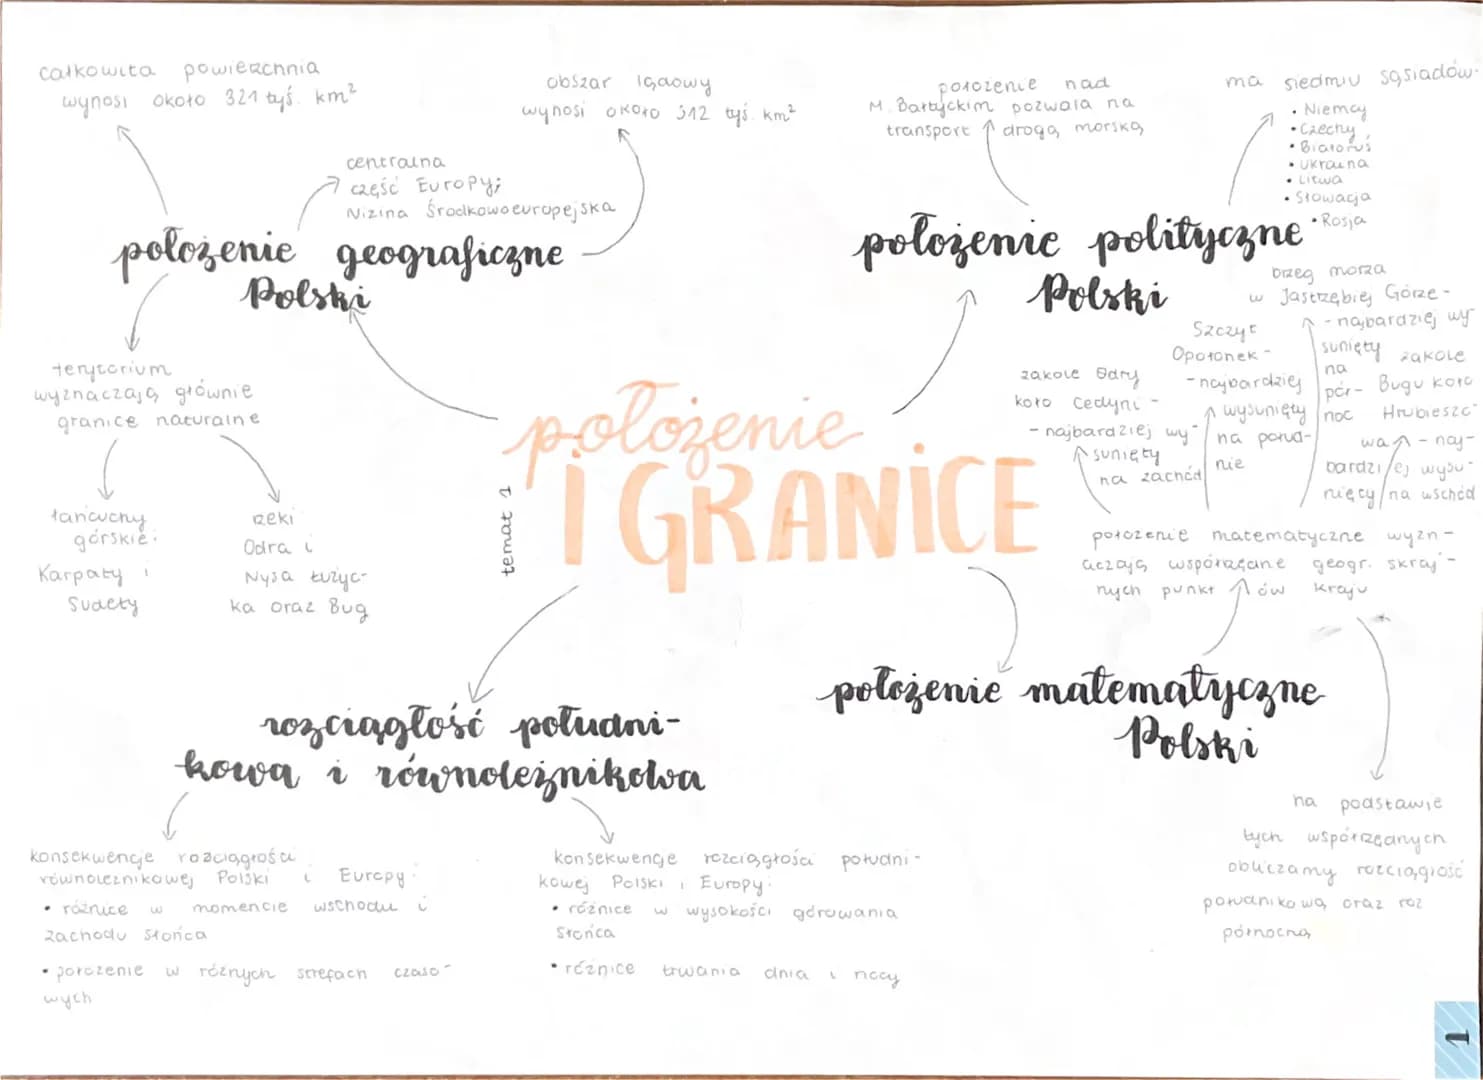 całkowita powierzchnia
wynosi około 321 tyś. km²
centralna
część Europy;
Nizina Środkowoeuropejska
obszar lądowy
wynosi około 312 tyś. km²
położenie geograficzne
Polski
terytorium
wyznaczają głównie
granice naturalne
łańcuchy
górskie:
Karpaty i
Sudety
rzeki
Odra i
Nysa Łużyc-
ka oraz Bug
położenie nad
M. Bałtyckim pozwala na
transport drogą morską
ma siedmiu sąsiadów:
• Niemcy
• Czechy
• Białoruś
• Ukraina
• Litwa
• Słowacja
• Rosja
położenie polityczne
Polski
temat 1
położenie
i GRANICE
zakole Odry
koło Cedyni -
- najbardziej wy-
sunięty
na zachód
Szczyt
Opołonek -
- najbardziej
wysunięty
na połud-
nie
brzeg morza
w Jastrzębiej Górze -
- najbardziej wy-
sunięty
na
pół-
noc
zakole
Bugu koło
Hrubieszo-
wa - naj-
bardziej wysu-
nięty na wschód
położenie matematyczne wyzn-
aczają współrzędne geogr. skraj-
nych punktów kraju
położenie matematyczne
Polski
na podstawie
tych współrzędnych
obliczamy rozciągłość
południkową oraz roz
północną
rozciągłość południ-
kowa i równoleżnikowa
konsekwencje rozciągłości
równoleżnikowej Polski i Europy:
• różnice w momencie wschodu i
zachodu Słońca
• położenie w różnych strefach czaso-
wych
konsekwencje rozciągłości południ-
kowej Polski i Europy:
• różnice w wysokości górowania
Słońca
• różnice trwania dnia i nocy
1